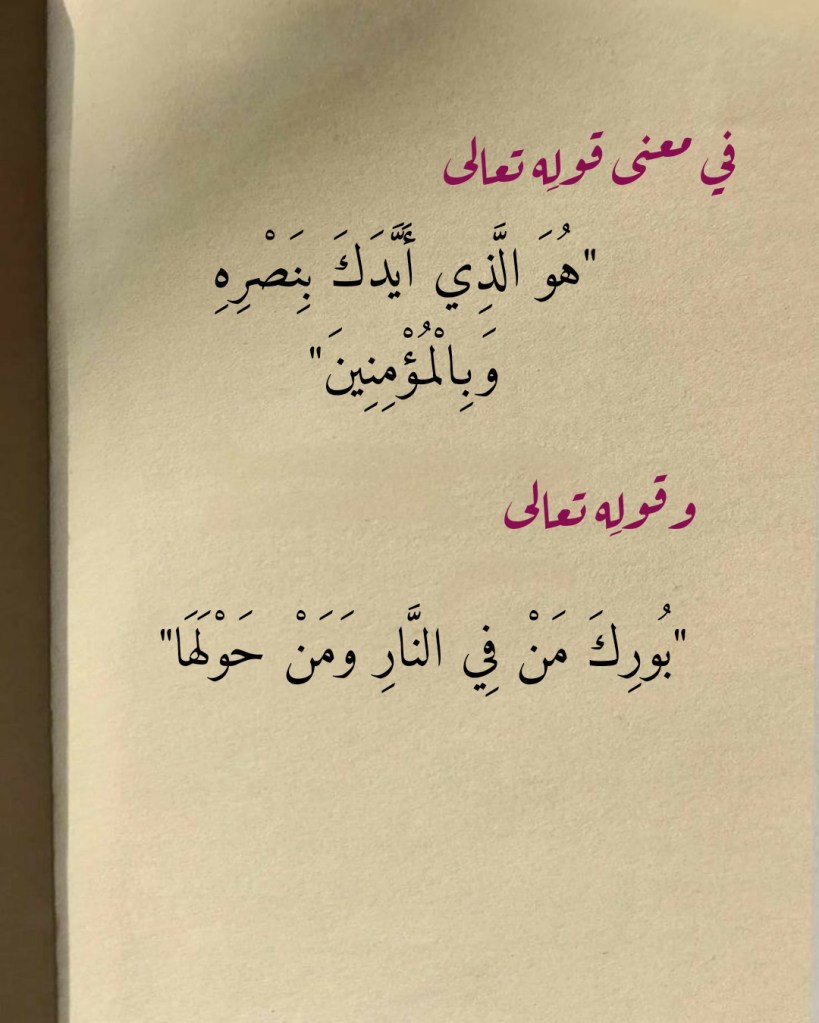 في معنى قولِه تعالى
"هُوَ الَّذِي أَيَّدَكَ بِنَصْرِهِ
وَبِالْمُؤْمِنِينَ"
و قولِه تعالى
"بُورِكَ مَنْ فِي النَّارِ وَمَنْ حَوْلَهَا"